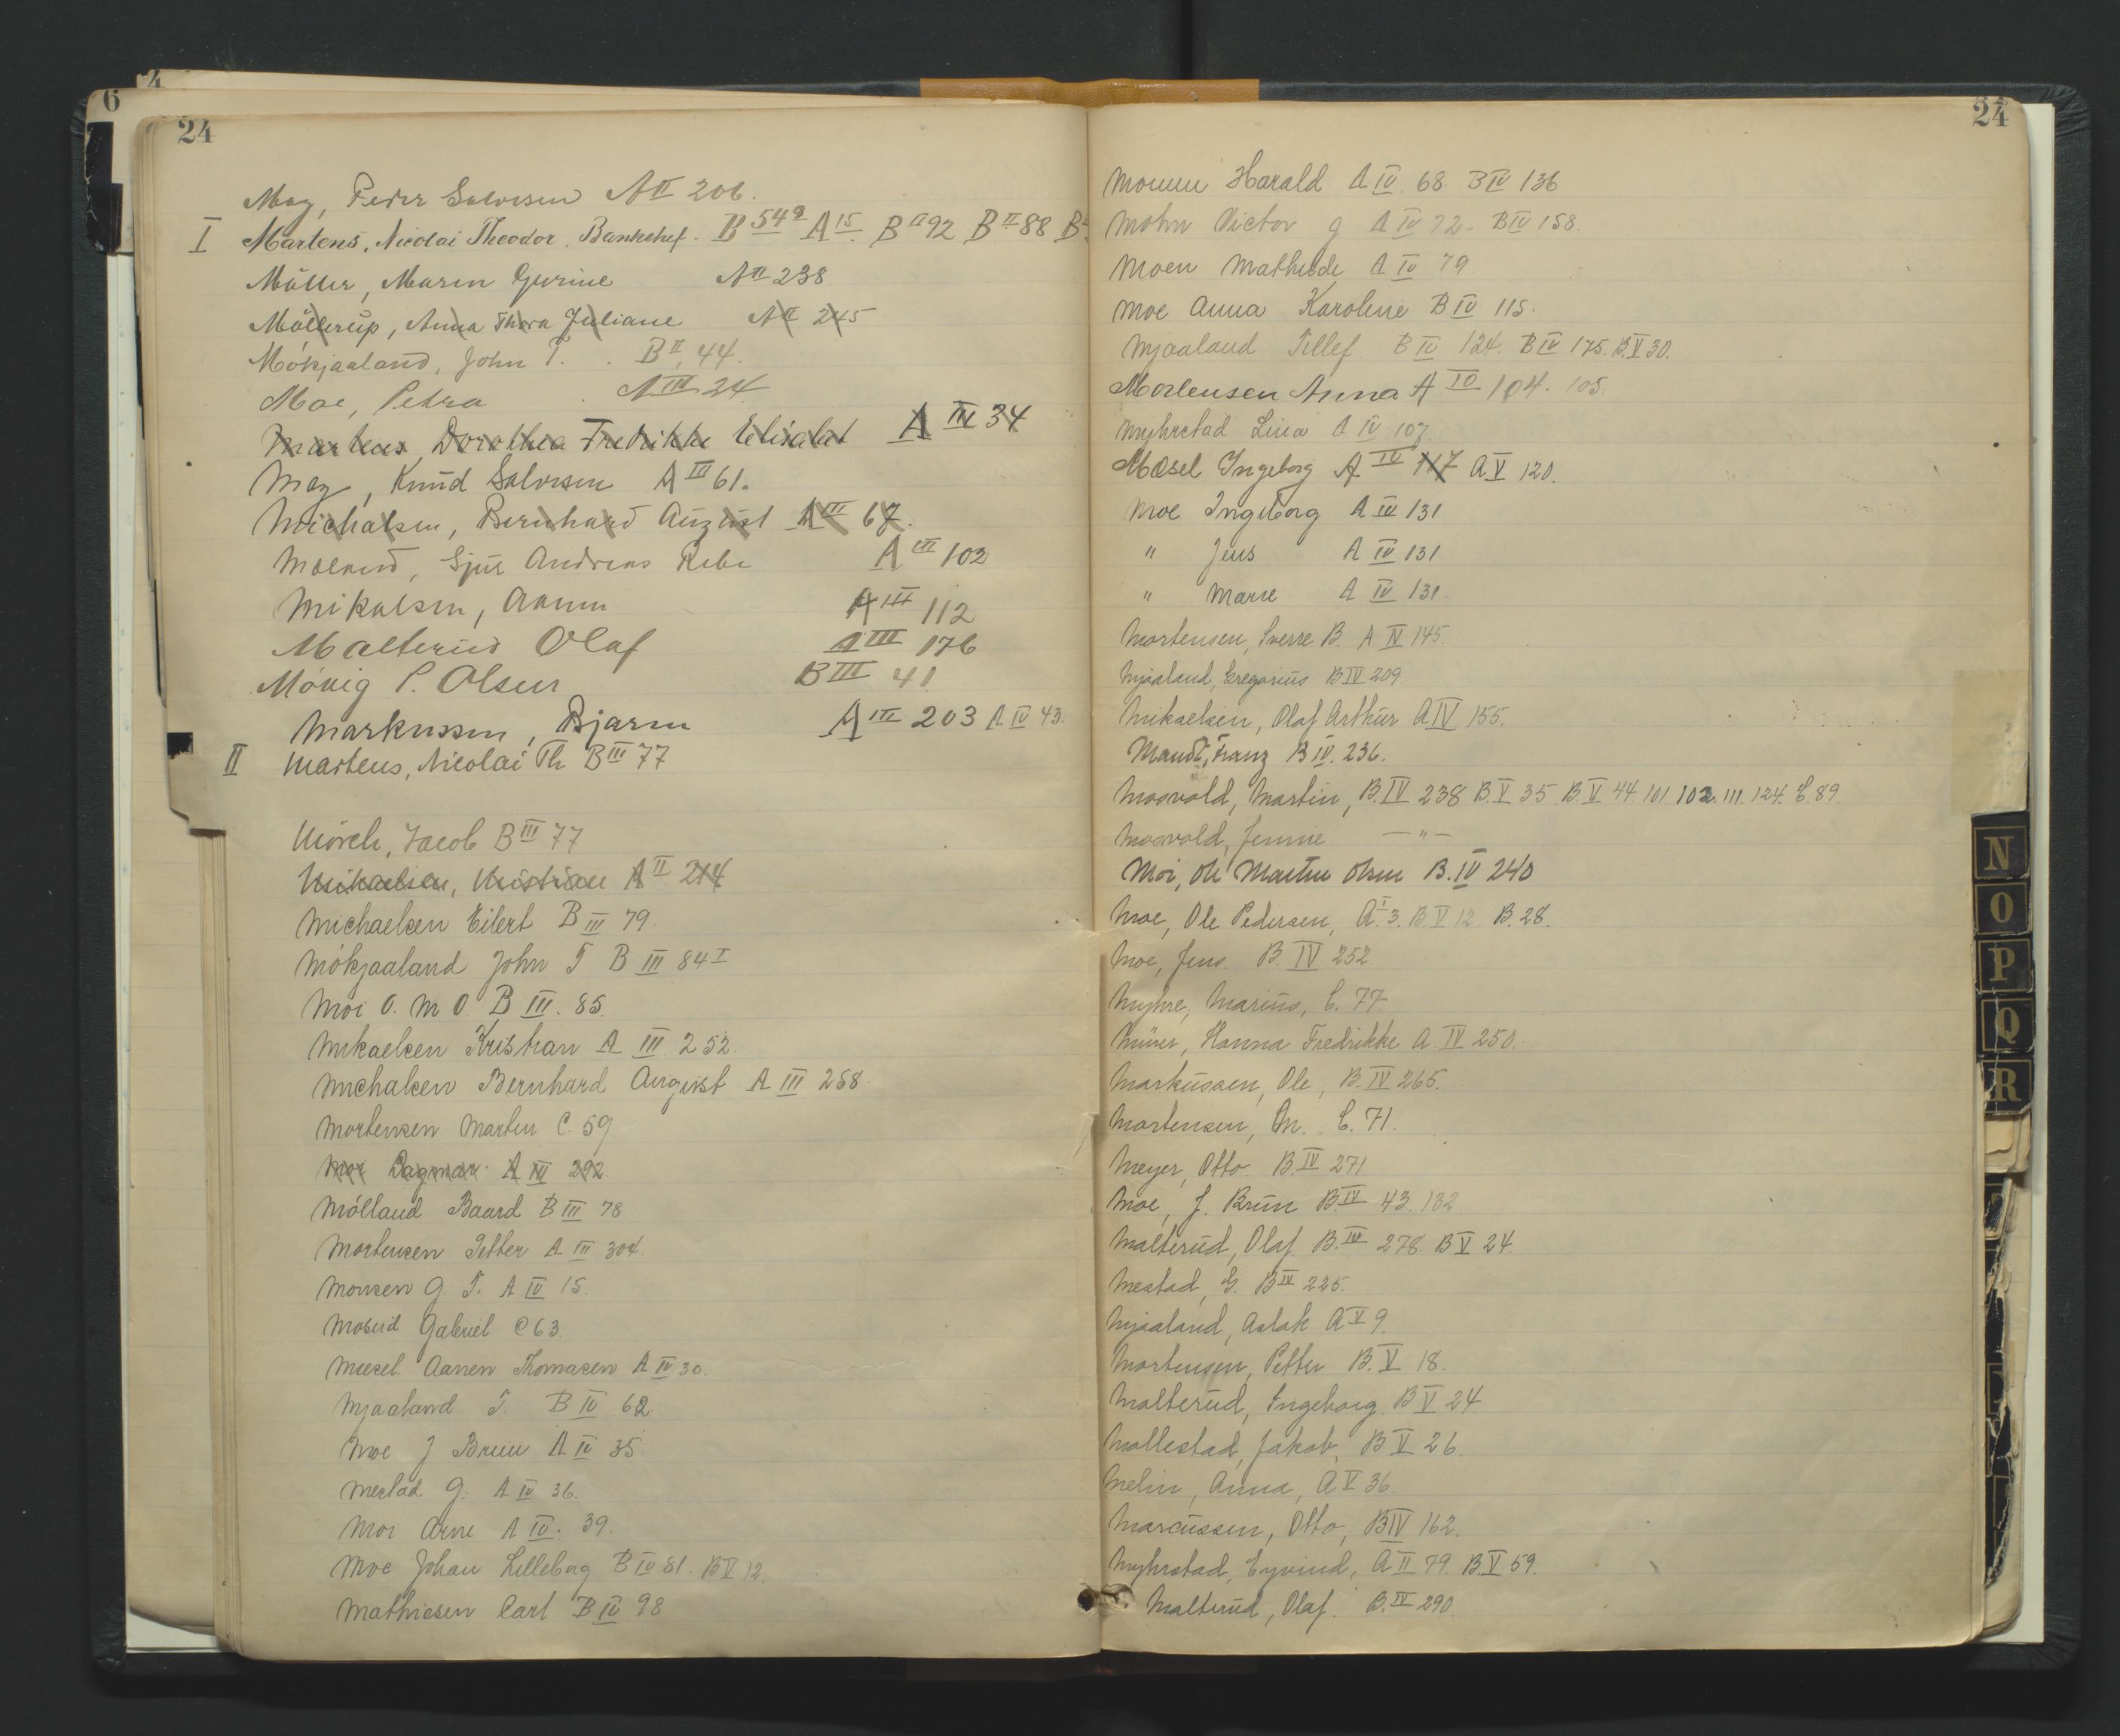 24
May, Peder Salvesen A II 206.
I Martens, Nicolai Theodor. Bankchef. B 549 A 15 B II 92 B II 88
Müller, Maren Gurine A II 238
Möllerup, Anna Thora Juliane A II 245
Mökjaaland, John T. B II, 44.
Moe, Petra A III 24
Martens Dorothea Fredrikke Elisabet A III 34
May, Knud Salvesen A III 61.
Michalsen, Bernhard August A III 67.
Andreas A III 102
Mikalsen, A III 112
Malterud Olaf A III 176
P. Olsen B III 41
Markussen, Bjarne A III 203 A IV 43.
II Martens, Nicolai Th B III 77
Mörch, Jacob B III 77
Mikaelsen, Kristian A II 214
Michaelsen Eilert B III 79
Mökjaaland John T B III 84 I
Moi O. M O B III. 85.
Mikaelsen Kristian A III 252.
Michalsen Bernhard August A III 258
Mortensen Martin C. 59
Moi Dagmar A III 292.
Mölland Baard B III 78
Mortensen Petter A III 304
Monsen G T. A IV 15.
Moseid Gabriel C 63.
Mæsel. Aanen Thomasen A IV 30.
Mjaaland T. B IV 62
Moe J Bruun A IV 35
Mestad G. A IV 36.
Moi Arne A IV. 39.
Moe Johan Lilleborg B IV 81. B V 12.
Mathiesen Carl B IV 98
24
Harald A IV. 68. B IV 136
Mohn Victor G A IV 72 - B IV 158.
Moen Mathilde A IV 79.
Moe Anna Karoline B IV 115.
Mjaaland Tellef B IV 124. B IV 175. B. V 30.
Mortensen Anna A IV 104. 105.
Myhrstad Lina A IV 107
Mæsel Ingeborg A IV 117 A V 120.
Moe Ingeborg A IV 131
" Jens A IV 131
" Marie A IV 131.
Mortensen, Sverre B. A IV 145.
Mjaaland, Gregorius B IV 209.
Mikaelsen, Olaf Arthur A IV 155.
Mandt, Franz B IV. 236.
Mosvold, Martin, B. IV 238 B. V 35 B V 44. 101 102. 111. 124. C. 89
Mosvold, Jennie — " —
Moi, Ole Martin Olsen B. IV 240
Moe, Ole Pedersen, A. I 3. B. V 12. B. 28.
Moe, Jens. B. IV 252
Myhre, Marius, C. 77
Hanna Fredrikke A. IV 250.
Markussen, Ole, B. IV 265.
Mortensen, M. C. 71.
Meyer, Otto B. IV 271
Moe, J. Bruun B. IV 43. 132.
Malterud, Olaf. B. IV 278. B V 24.
Mestad, G. B IV 225.
Mjaaland, Aslak A V 9.
Mortensen, Petter B. V 18.
Malterud, Ingeborg B V 24
Mollestad, Jakob, B V 26.
Melin, Anna, A V 36
Marcussen, Otto, B IV 162.
Myhrstad, Eyvind, A II 79. B. V 59.
Malterud, Olaf. B. IV 290
N
O
P
Q
R
6